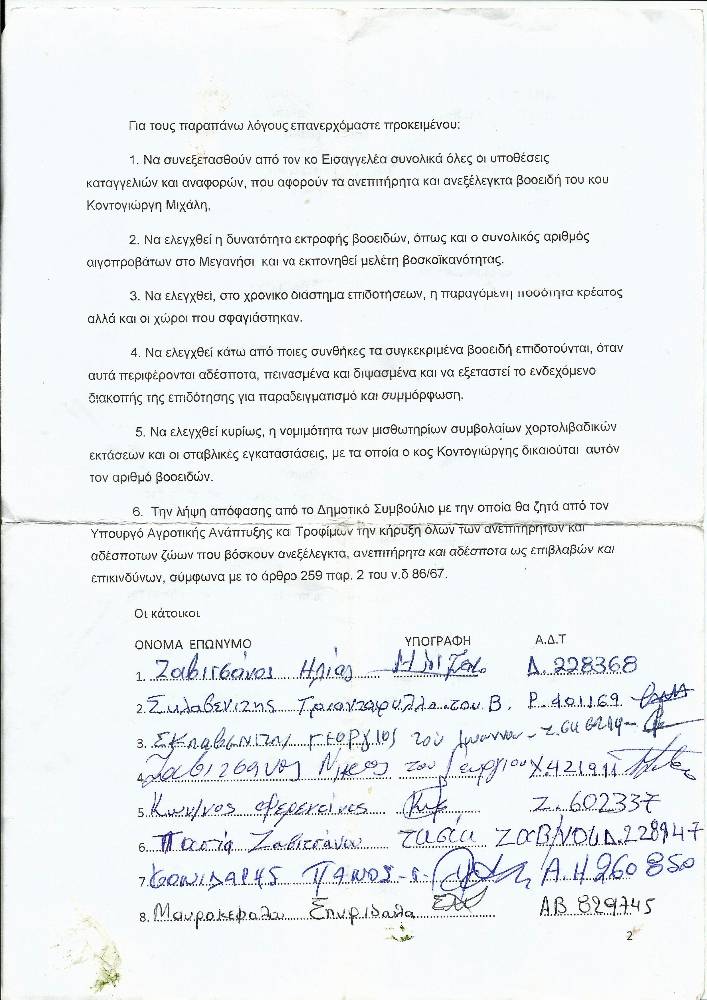 Για τους παραπάνω λόγους επανερχόμαστε προκειμένου:
1. Να συνεξετασθούν από τον κο Εισαγγελέα συνολικά όλες οι υποθέσεις
καταγγελιών και αναφορών, που αφορούν τα ανεπιτήρητα και ανεξέλεγκτα βοοειδή του κου
Κοντογιώργη Μιχάλη.
2. Να ελεγχθεί η δυνατότητα εκτροφής βοοειδών, όπως και ο συνολικός αριθμός
αιγοπροβάτων στο Μεγανήσι και να εκπονηθεί μελέτη βοσκοϊκανότητας.
3. Να ελεγχθεί, στο χρονικο διάστημα επιδοτήσεων, η παραγόμενη ποσότητα κρέατος
αλλά και οι χώροι που σφαγιάστηκαν.
4. Να ελεγχθεί κάτω από ποιες συνθήκες τα συγκεκριμένα βοοειδή επιδοτούνται, όταν
αυτά περιφέρονται αδέσποτα, πεινασμένα και διψασμένα και να εξεταστεί το ενδεχόμενο
διακοπής της επιδότησης για παραδειγματισμό και συμμόρφωση.
5. Να ελεγχθεί κυρίως, η νομιμότητα των μισθωτηρίων συμβολαίων χορτολιβαδικών
εκτάσεων και οι σταβλικές εγκαταστάσεις, με τα οποία ο κος Κοντογιώργης δικαιούται αυτόν
τον αριθμό βοοειδών.
6. Την λήψη απόφασης από το Δημοτικό Συμβούλιο με την οποία θα ζητά από τον
Υπουργό Αγροτικής Ανάπτυξης και Τροφίμων την κήρυξη όλων των ανεπιτήρητων και
αδέσποτων ζώων που βόσκουν ανεξέλεγκτα, ανεπιτήρητα και αδέσποτα ως επιβλαβών και
επικινδύνων, σύμφωνα με το άρθρο 259 παρ. 2 του ν.δ 86/67.
Οι κάτοικοι
ΟΝΟΜΑ ΕΠΩΝΥΜΟ ΥΠΟΓΡΑΦΗ Α.Δ.Τ
1. Ζαβιτσάνος Ηλίας Λ. 228368
2. Σκλαβενίτης του Β. Ρ. 401169
3. ΣΚΛΑΒΕΝΙΤΗΣ ΓΕΩΡΓΙΟΣ του Ιωάννου
4. Ζαβιτσάνος του Γεωργίου Χ421911
5. Κων/νος Ζ. 602337
6. Ζαβιτσάνου Λ. 228947
7. ΠΑΝΟΣ Α.Η 260850
8. Μαυροκεφάλου Σπυριδούλα ΑΒ 829745
2